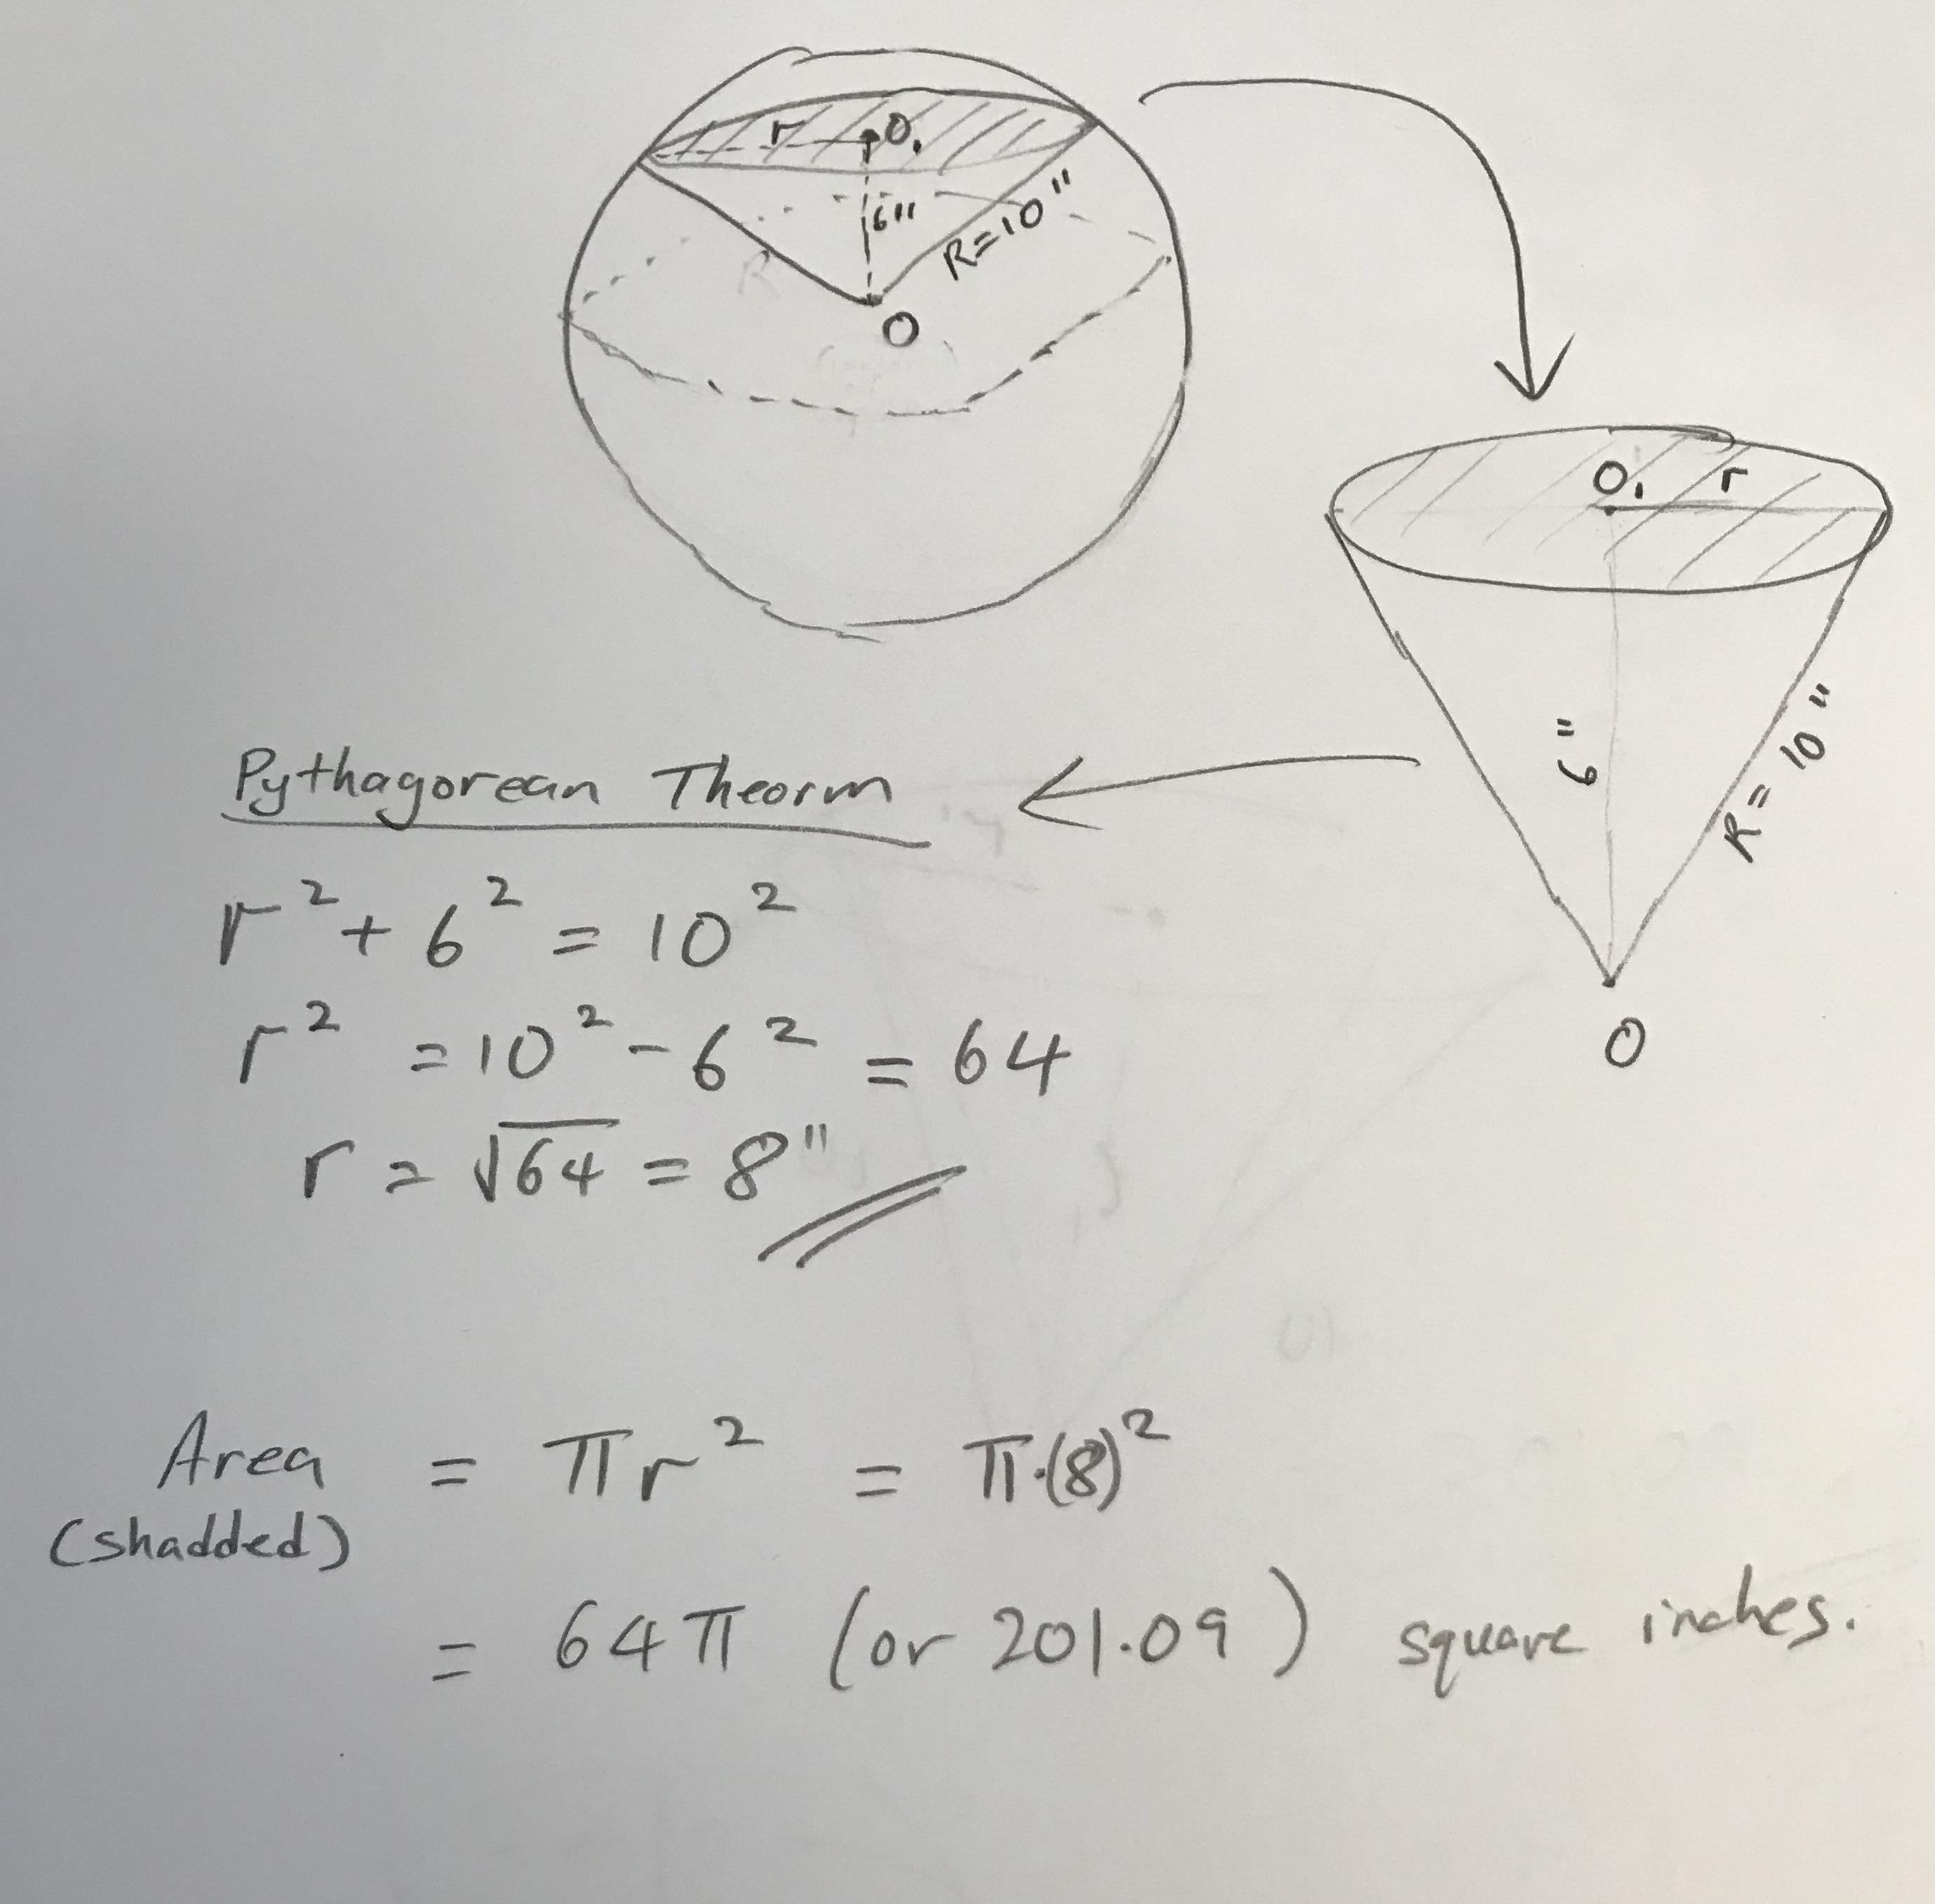 r O₁
6"
R=10"
R
O
O₁ r
6"
R=10"
O
Pythagorean Theorm
r² + 6² = 10²
r² = 10² - 6² = 64
r = √64 = 8"
Area = πr² = π·(8)²
(shadded)
= 64π (or 201.09) square inches.